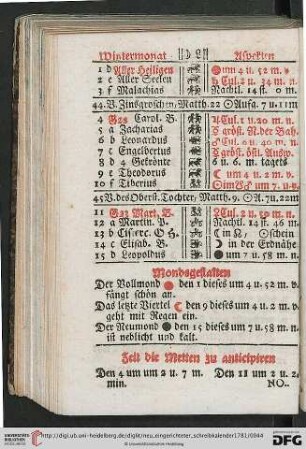 Wintermonat ☽ Aspekten
1 d Aller Heiligen um 4 u. 52 m. v.
2 e Aller Seelen ♃ Cul. 2 u. 34 m. n.
3 f Malachias Nachtl. 14 st. 0 m.
44. V. Zinsgroschen, Matth. 22 ☉ Aufg. 7 u. 11 m
4 G 23 Carol. B. Cul. 1 u. 20 m. n.
5 a Zacharias größt. N. der Bah.
6 b Leonardus ♂ Cul. 0 u. 40 m.
7 c Engelbertus größt. östl. Ausw.
8 d 4 Gekrönte 6 u. 6. m. tagets
9 e Theodorus ☾ um 4 u. 2 m. v.
10 f Tiberius um 7. u. v.
45 V. des Oberst. Tochter, Matth. 9. ☉ A. 7 u. 22 m
11 G 23 Mart. B. Cul. 2 u. 19 m. n.
12 a Martin. P. Nachtl. 14 st. 46 m.
13 b ☉schein
14 c Elisab. B. ☽ in der Erdnähe
15 d Leopoldus um 7 u. 58 m. n.
Mondsgestalten
Der Vollmond den 1 dieses um 4 u. 52 m. v.
fängt schön an.
Das letzte Viertel ☾ den 9 dieses um 4 u. 2 m. v.
geht mit Regen ein.
Der Neumond den 15 dieses um 7 u. 58 m. n.
ist neblicht und kalt.
Zeit die Metten zu anticipiren
Den 4 um um 2 u. 7 m. Den 11 um 2 u. 2.
min. NO..
http://digi.ub.uni-heidelberg.de/diglit/neu_eingerichteter_schreibkalender1781/0044
© Universitätsbibliothek Heidelberg
UNIVERSITÄTS-
BIBLIOTHEK
HEIDELBERG
gefördert durch die
DFG